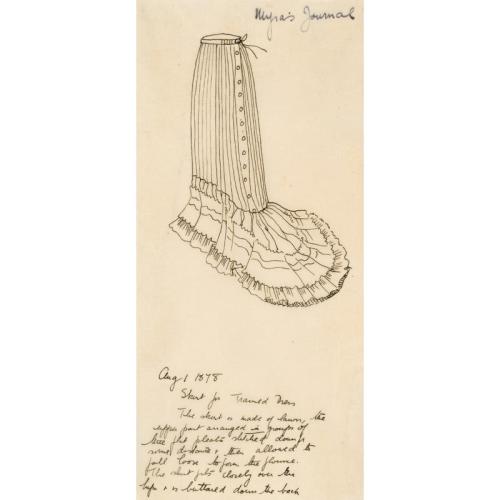 Myra's Journal
Aug 1 1878
Skirt for Trained Dress
The skirt is made of lawn, the
upper part arranged in groups of
three flat pleats stitched down
some distance & then allowed to
fall loose to form the flounce.
The skirt fits closely over the
hips & is buttoned down the back